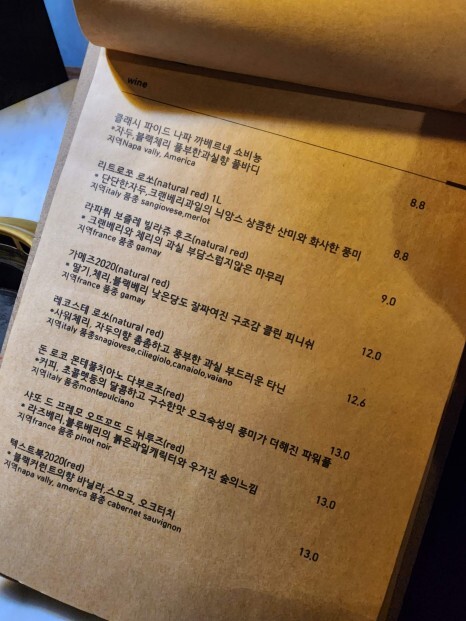 wine
클래시 파이드 나파 까베르네 쇼비뇽
*자두,블랙체리 풍부한과실향 풀바디
지역Napa vally, America
8.8
리트로쪼 로쏘(natural red) 1L
* 단단한자두,크랜베리과일의 뉘앙스 상큼한 산미와 화사한 풍미
지역italy 품종 sangiovese,merlot
8.8
라파뤼 보졸레 빌라쥬 후즈(natural red)
* 크랜베리와 체리의 과실 부담스럽지않은 마무리
지역france 품종 gamay
9.0
가메즈2020(natural red)
* 딸기,체리,블랙베리 낮은당도 잘짜여진 구조감 클린 피니쉬
지역france 품종 gamay
12.0
레코스테 로쏘(natural red)
*사워체리, 자두의향 촘촘하고 풍부한 과실 부드러운 타닌
지역italy 품종snagiovese,ciliegiolo,canaiolo,vaiano
12.6
돈 로코 몬테풀치아노 다부르조(red)
*커피, 초콜렛등의 달콤하고 구수한맛 오크숙성의 풍미가 더해진 파워풀
지역italy 품종montepulciano
13.0
샤또 드 프레모 오뜨꼬뜨 드 뉘루즈(red)
* 라즈베리,블루베리의 붉은과일캐릭터와 우거진 숲의느낌
지역france 품종 pinot noir
13.0
텍스트북2020(red)
* 블랙커런트의향 바닐라,스모크, 오크터치
지역napa vally, america 품종 cabernet sauvignon
13.0